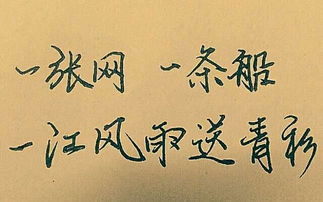 一张网 一条船
一江风雨送青衫